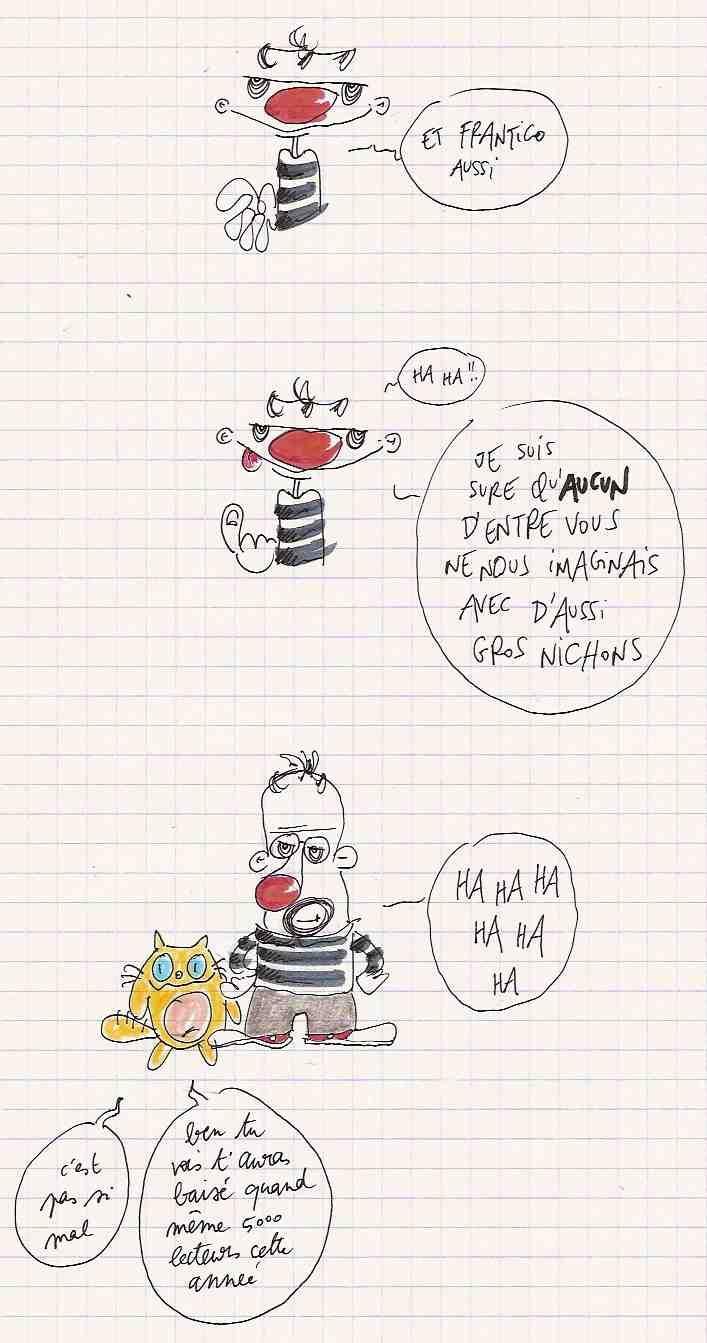 ET FRANTICO
AUSSI
HA HA!!
JE SUIS
SURE QU'AUCUN
D'ENTRE VOUS
NE NOUS IMAGINAIS
AVEC D'AUSSI
GROS NICHONS
HA HA HA
HA HA
HA
c'est
pas si
mal
ben tu
vois t'auras
baisé quand
même 5000
lecteurs cette
année